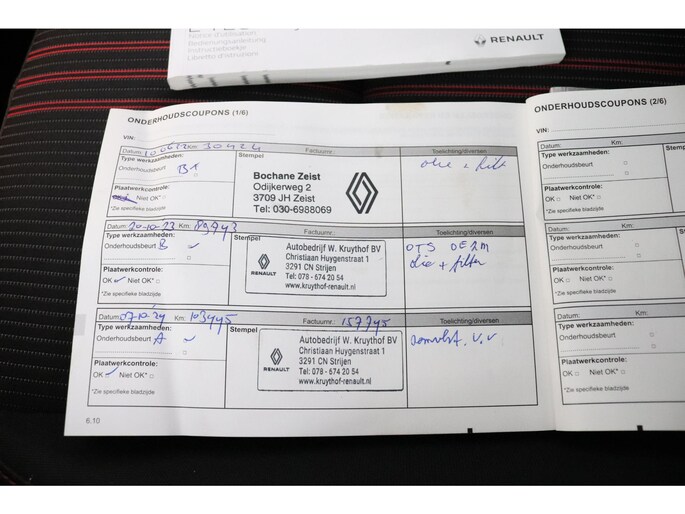 Notice d'utilisation
Bedienungsanleitung
Instructieboekje
Libretto d'istruzioni
RENAULT
ONDERHOUDSCOUPONS (1/6)
VIN:
Datum: Km: 30424 Factuurnr.: Toelichting/diversen
Type werkzaamheden: Stempel
Onderhoudsbeurt
Plaatwerkcontrole:
Niet OK*
*Zie specifieke bladzijde
Bochane Zeist
Odijkerweg 2
3709 JH Zeist
Tel: 030-6988069
olie + filter
Datum: 20-10-23 Km: Factuurnr.: Toelichting/diversen
Type werkzaamheden: Stempel
Onderhoudsbeurt B
Plaatwerkcontrole:
OK Niet OK*
*Zie specifieke bladzijde
RENAULT
Autobedrijf W. Kruythof BV
Christiaan Huygenstraat 1
3291 CN Strijen
Tel: 078 - 674 20 54
www.kruythof-renault.nl
OTS
olie + filter
Datum: 07-10-24 Km: 103445 Factuurnr.: 157745 Toelichting/diversen
Type werkzaamheden: Stempel
Onderhoudsbeurt A
Plaatwerkcontrole:
OK Niet OK*
*Zie specifieke bladzijde
RENAULT
Autobedrijf W. Kruythof BV
Christiaan Huygenstraat 1
3291 CN Strijen
Tel: 078 - 674 20 54
www.kruythof-renault.nl
6.10
ONDERHOUDSCOUPONS (2/6)
VIN:
Datum: Km:
Type werkzaamheden: Stempel
Onderhoudsbeurt
Plaatwerkcontrole:
OK Niet OK*
*Zie specifieke bladzijde
Datum: Km:
Type werkzaamheden: Ste
Onderhoudsbeurt
Plaatwerkcontrole:
OK Niet OK*
*Zie specifieke bladzijde
Datum: Km:
Type werkzaamheden:
Onderhoudsbeurt
Plaatwerkcontrole:
OK Niet OK*
*Zie specifieke bladzijde